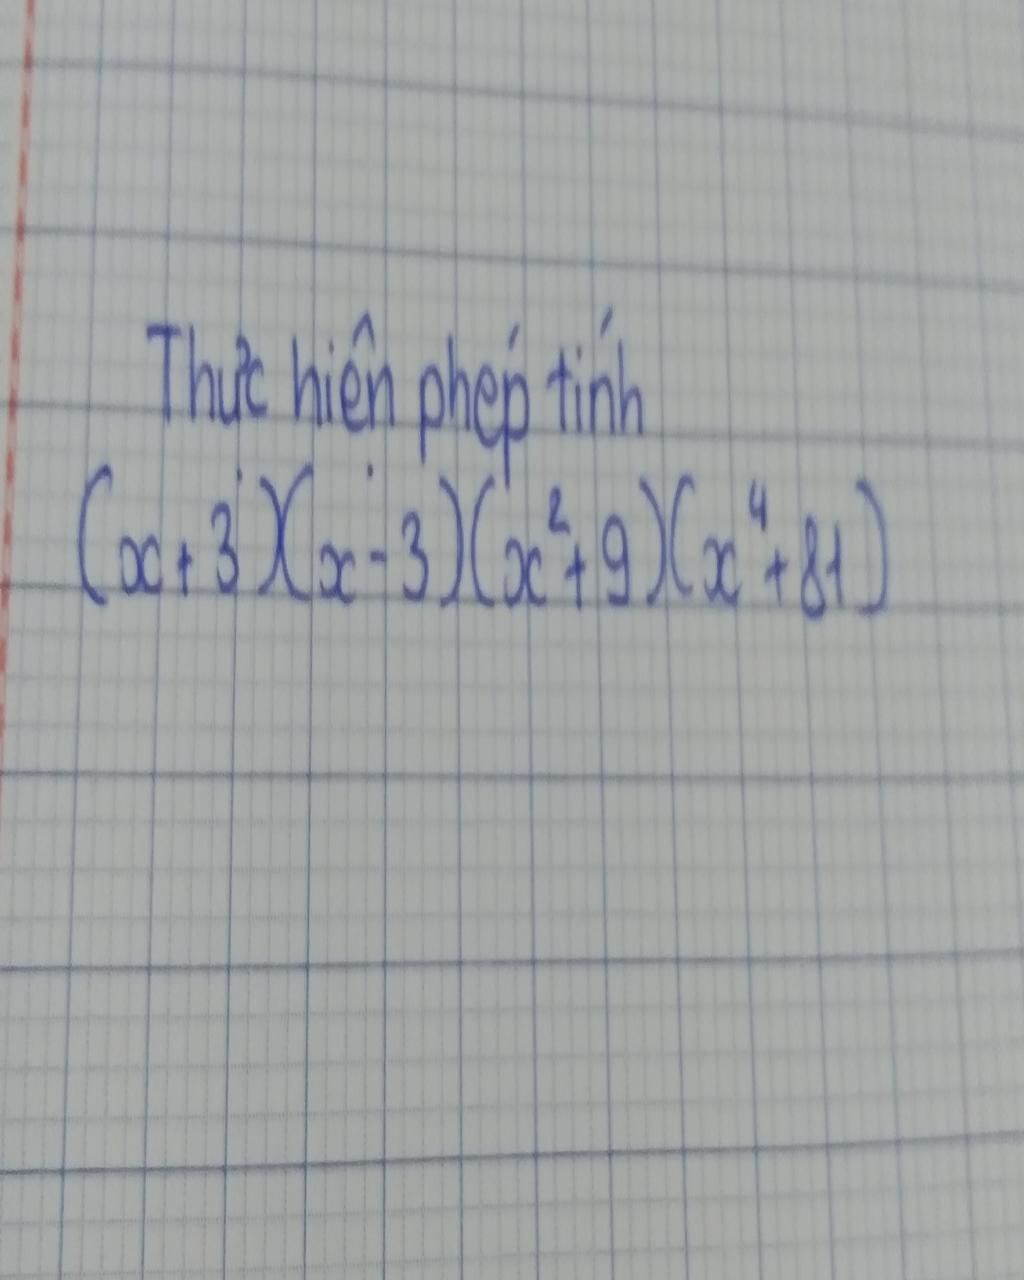 Thực hiện phép tính
(x+3)(x-3)(x²+9)(x⁴+81)